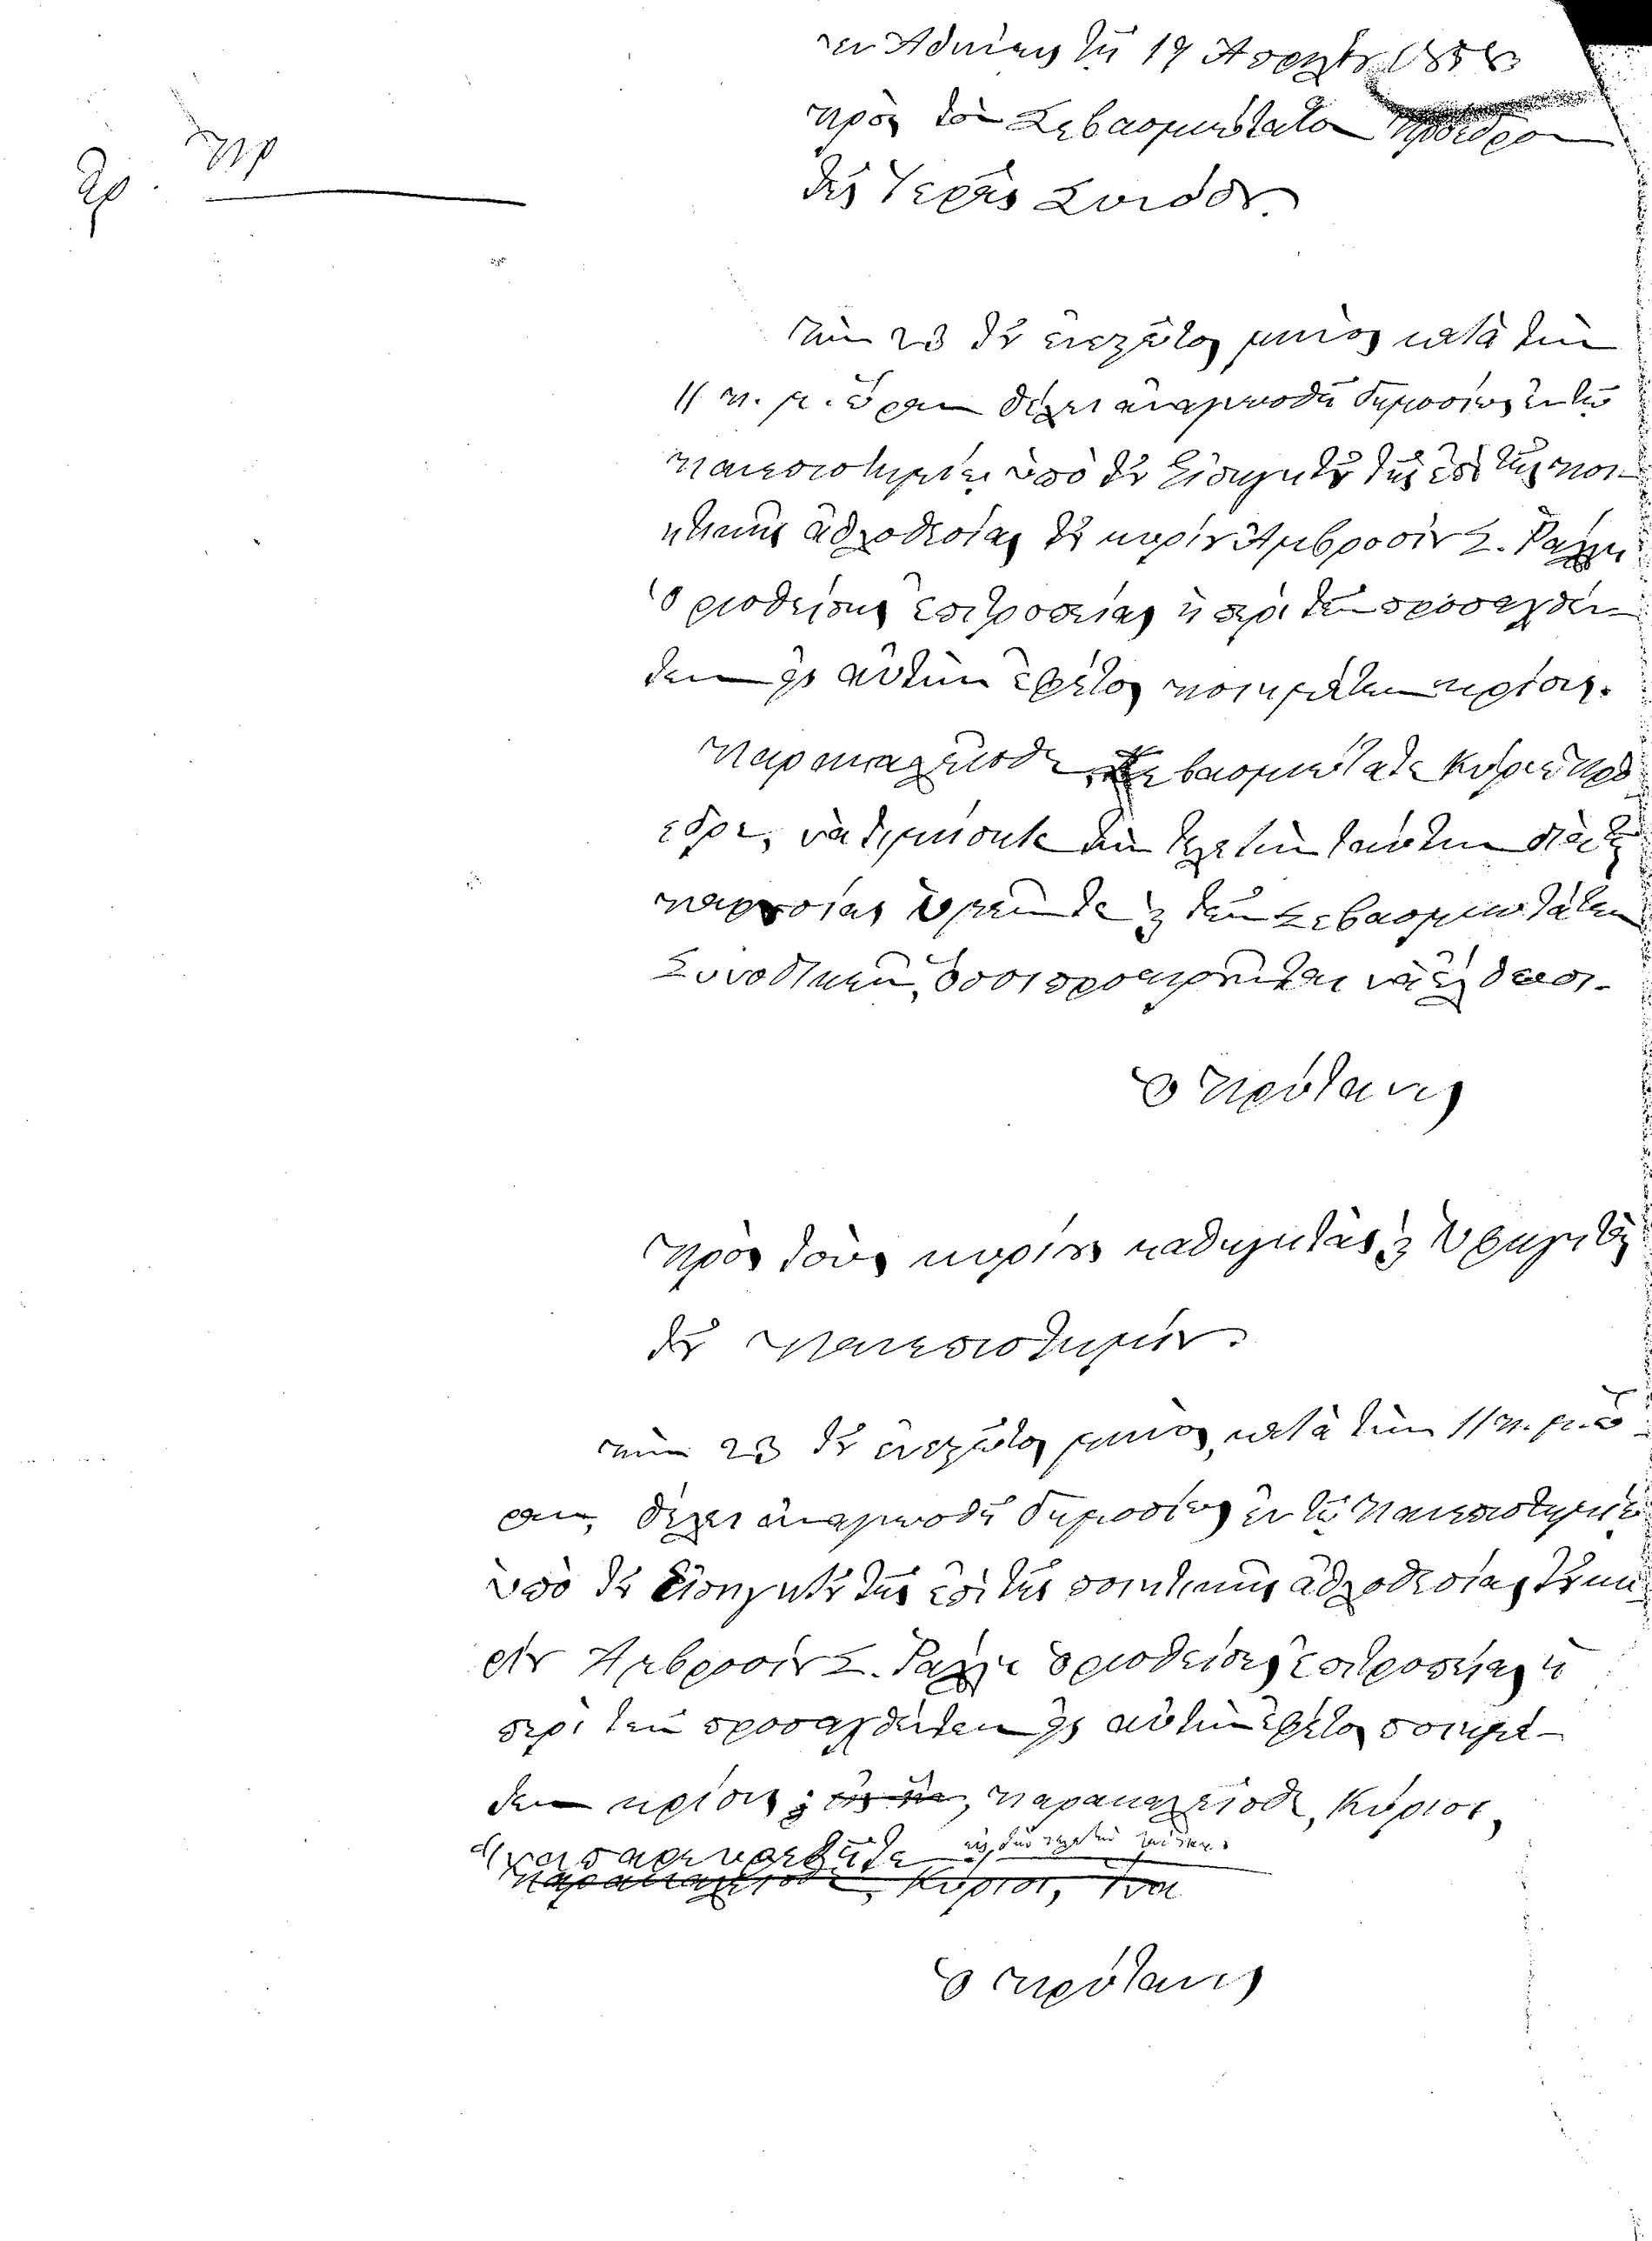 Ἐν Ἀθήναις τῇ 19 Ἀπριλίου 1853
Πρ
Πρὸς τὸν Σεβασμιώτατον Πρόεδρον
τῆς Ἱερᾶς Συνόδου.
Τὴν 23 τοῦ ἐνεστῶτος μηνὸς κατὰ τὴν
11 π. μ. ὥραν θέλει ἀναγνωσθῆ δημοσίως ἐν τῷ
Πανεπιστημίῳ ὑπὸ τοῦ Εἰσηγητοῦ τῆς ἐπὶ τῆς ποι-
ητικῆς ἀθλοθεσίας τοῦ κυρίου Ἀμβροσίου Σ. Ράλλη
ὁρισθείσης ἐπιτροπείας ἡ περὶ τῶν προσαχθέν-
των εἰς αὐτὴν ἐφέτος ποιημάτων κρίσις.
Παρακαλεῖσθε, Σεβασμιώτατε Κύριε Πρό-
εδρε, νὰ τιμήσητε τὴν τελετὴν ταύτην διὰ τῆς
παρουσίας ὑμῶν τε καὶ τῶν Σεβασμιωτάτων
Συνοδικῶν, ὅσοι προαιροῦνται νὰ ἔλθωσι.
Ὁ Πρύτανις
Πρὸς τοὺς κυρίους καθηγητὰς καὶ ὑφηγητὰς
τοῦ Πανεπιστημίου.
Τὴν 23 τοῦ ἐνεστῶτος μηνὸς, κατὰ τὴν 11 π. μ. ὥ-
ραν, θέλει ἀναγνωσθῆ δημοσίως ἐν τῷ Πανεπιστημίῳ
ὑπὸ τοῦ Εἰσηγητοῦ τῆς ἐπὶ τῆς ποιητικῆς ἀθλοθεσίας τοῦ κυ-
ρίου Ἀμβροσίου Σ. Ράλλη ὁρισθείσης ἐπιτροπείας ἡ
περὶ τῶν προσαχθέντων εἰς αὐτὴν ἐφέτος ποιημά-
των κρίσις; παρακαλεῖσθε, Κύριοι,
ἵνα παρευρεθῆτε εἰς τὴν τελετὴν ταύτην.
παρακαλεῖσθε, Κύριοι, ἵνα
Ὁ Πρύτανις